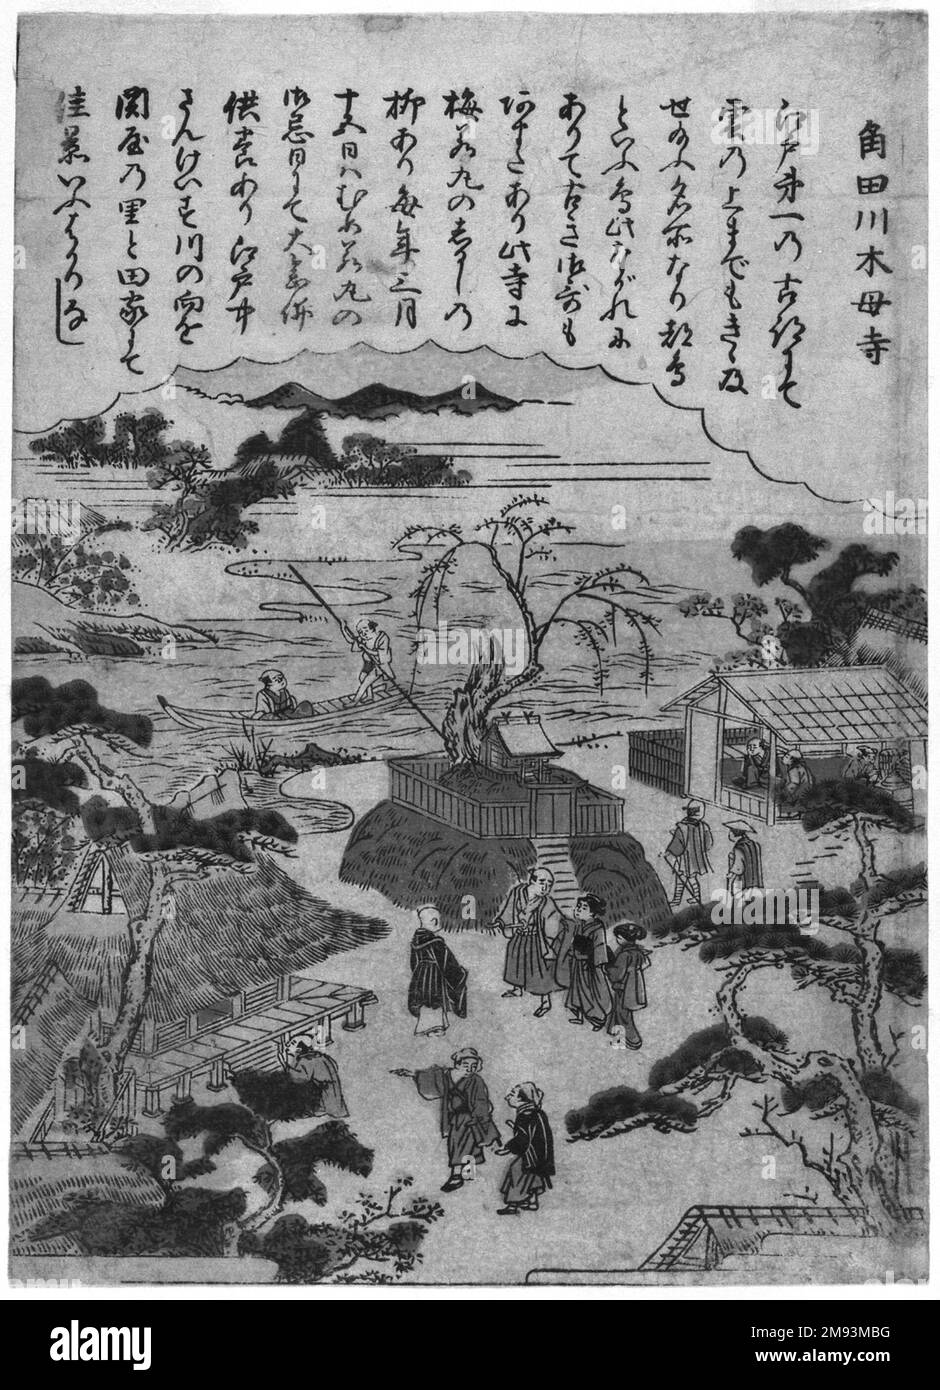 角田川木母寺
江戸第一の古跡にて
雲の上までもきゝ及
名所なり都鳥
といふ鳥此ながれに
ありて古き御哥も
あまたあり此寺に
梅若丸のしるしの
柳あり毎年三月
十五日はむめわか丸の
御忌日にて大念佛
供養あり江戸中
さんけいす川の向を
関屋の里と田家にて
佳景いふはかりなし
alamy
Image ID: 2M93MBG
www.alamy.com